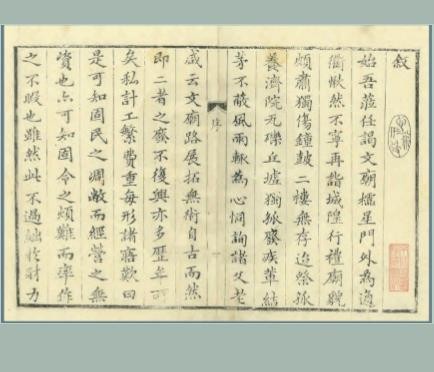 敘
始吾蒞任謁文廟櫺星門外為通
衢愀然不寧再詣城隍行禮廟貌
頗肅獨傷鐘鼓二樓無存迨祭孤
養濟院瓦礫丘墟獨孤癈疾輩結
茅不蔽風雨輒為心惻詢諸父老
咸云文廟路展拓無術自古而然
即二者之廢不復興亦多歷年
矣私計工繁費重每形諸寤歎曰
是可知固民之凋敝而經營之無
資也亦可知固令之煩難而率作
之不暇也雖然此不過絀於財力
序